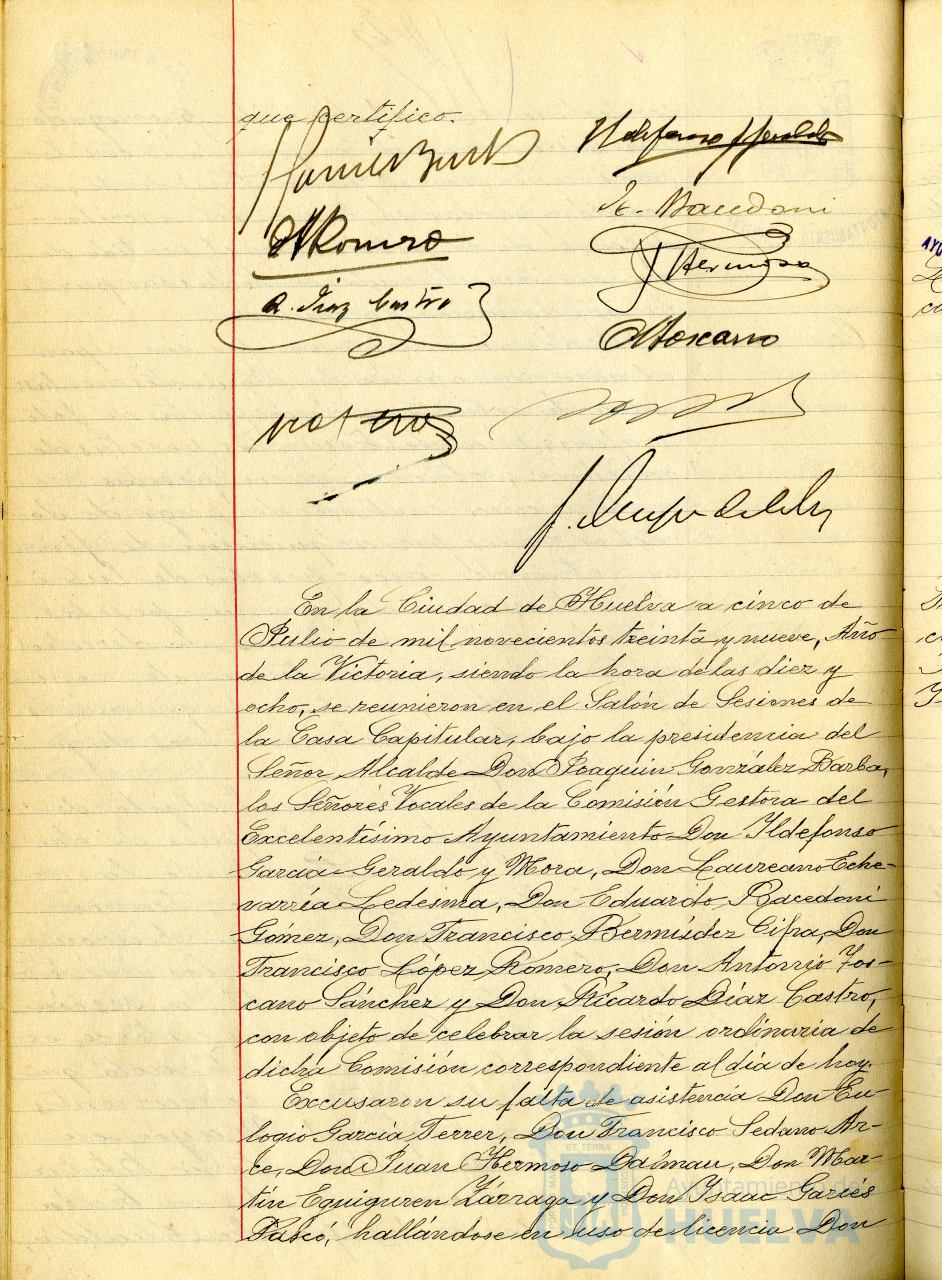 que certifico.
Ildefonso Geraldo
E. Racedoni
A Romero
J Hermoso
R. Diaz Castro
A Toscano
En la Ciudad de Huelva a cinco de
Julio de mil novecientos treinta y nueve, Año
de la Victoria, siendo la hora de las diez y
ocho, se reunieron en el Salón de Sesiones de
la Casa Capitular, bajo la presidencia del
Señor Alcalde Don Joaquín González Barba,
los Señores Vocales de la Comisión Gestora del
Excelentísimo Ayuntamiento Don Ildefonso
García-Geraldo y Mora, Don Laureano Eche-
varría Ledesma, Don Eduardo Racedoni
Gómez, Don Francisco Bermúdez Cifra, Don
Francisco López Romero, Don Antonio Tos-
cano Sánchez y Don Ricardo Díaz Castro,
con objeto de celebrar la sesión ordinaria de
dicha Comisión correspondiente al día de hoy.
Excusaron su falta de asistencia Don Eu-
logio García Terrer, Don Francisco Sedano Ar-
ce, Don Juan Hermoso Dalmau, Don Mar-
tín Eguiguren Zárraga y Don Isaac Garcés
Pascó, hallándose en uso de licencia Don
Ayuntamiento de
HUELVA